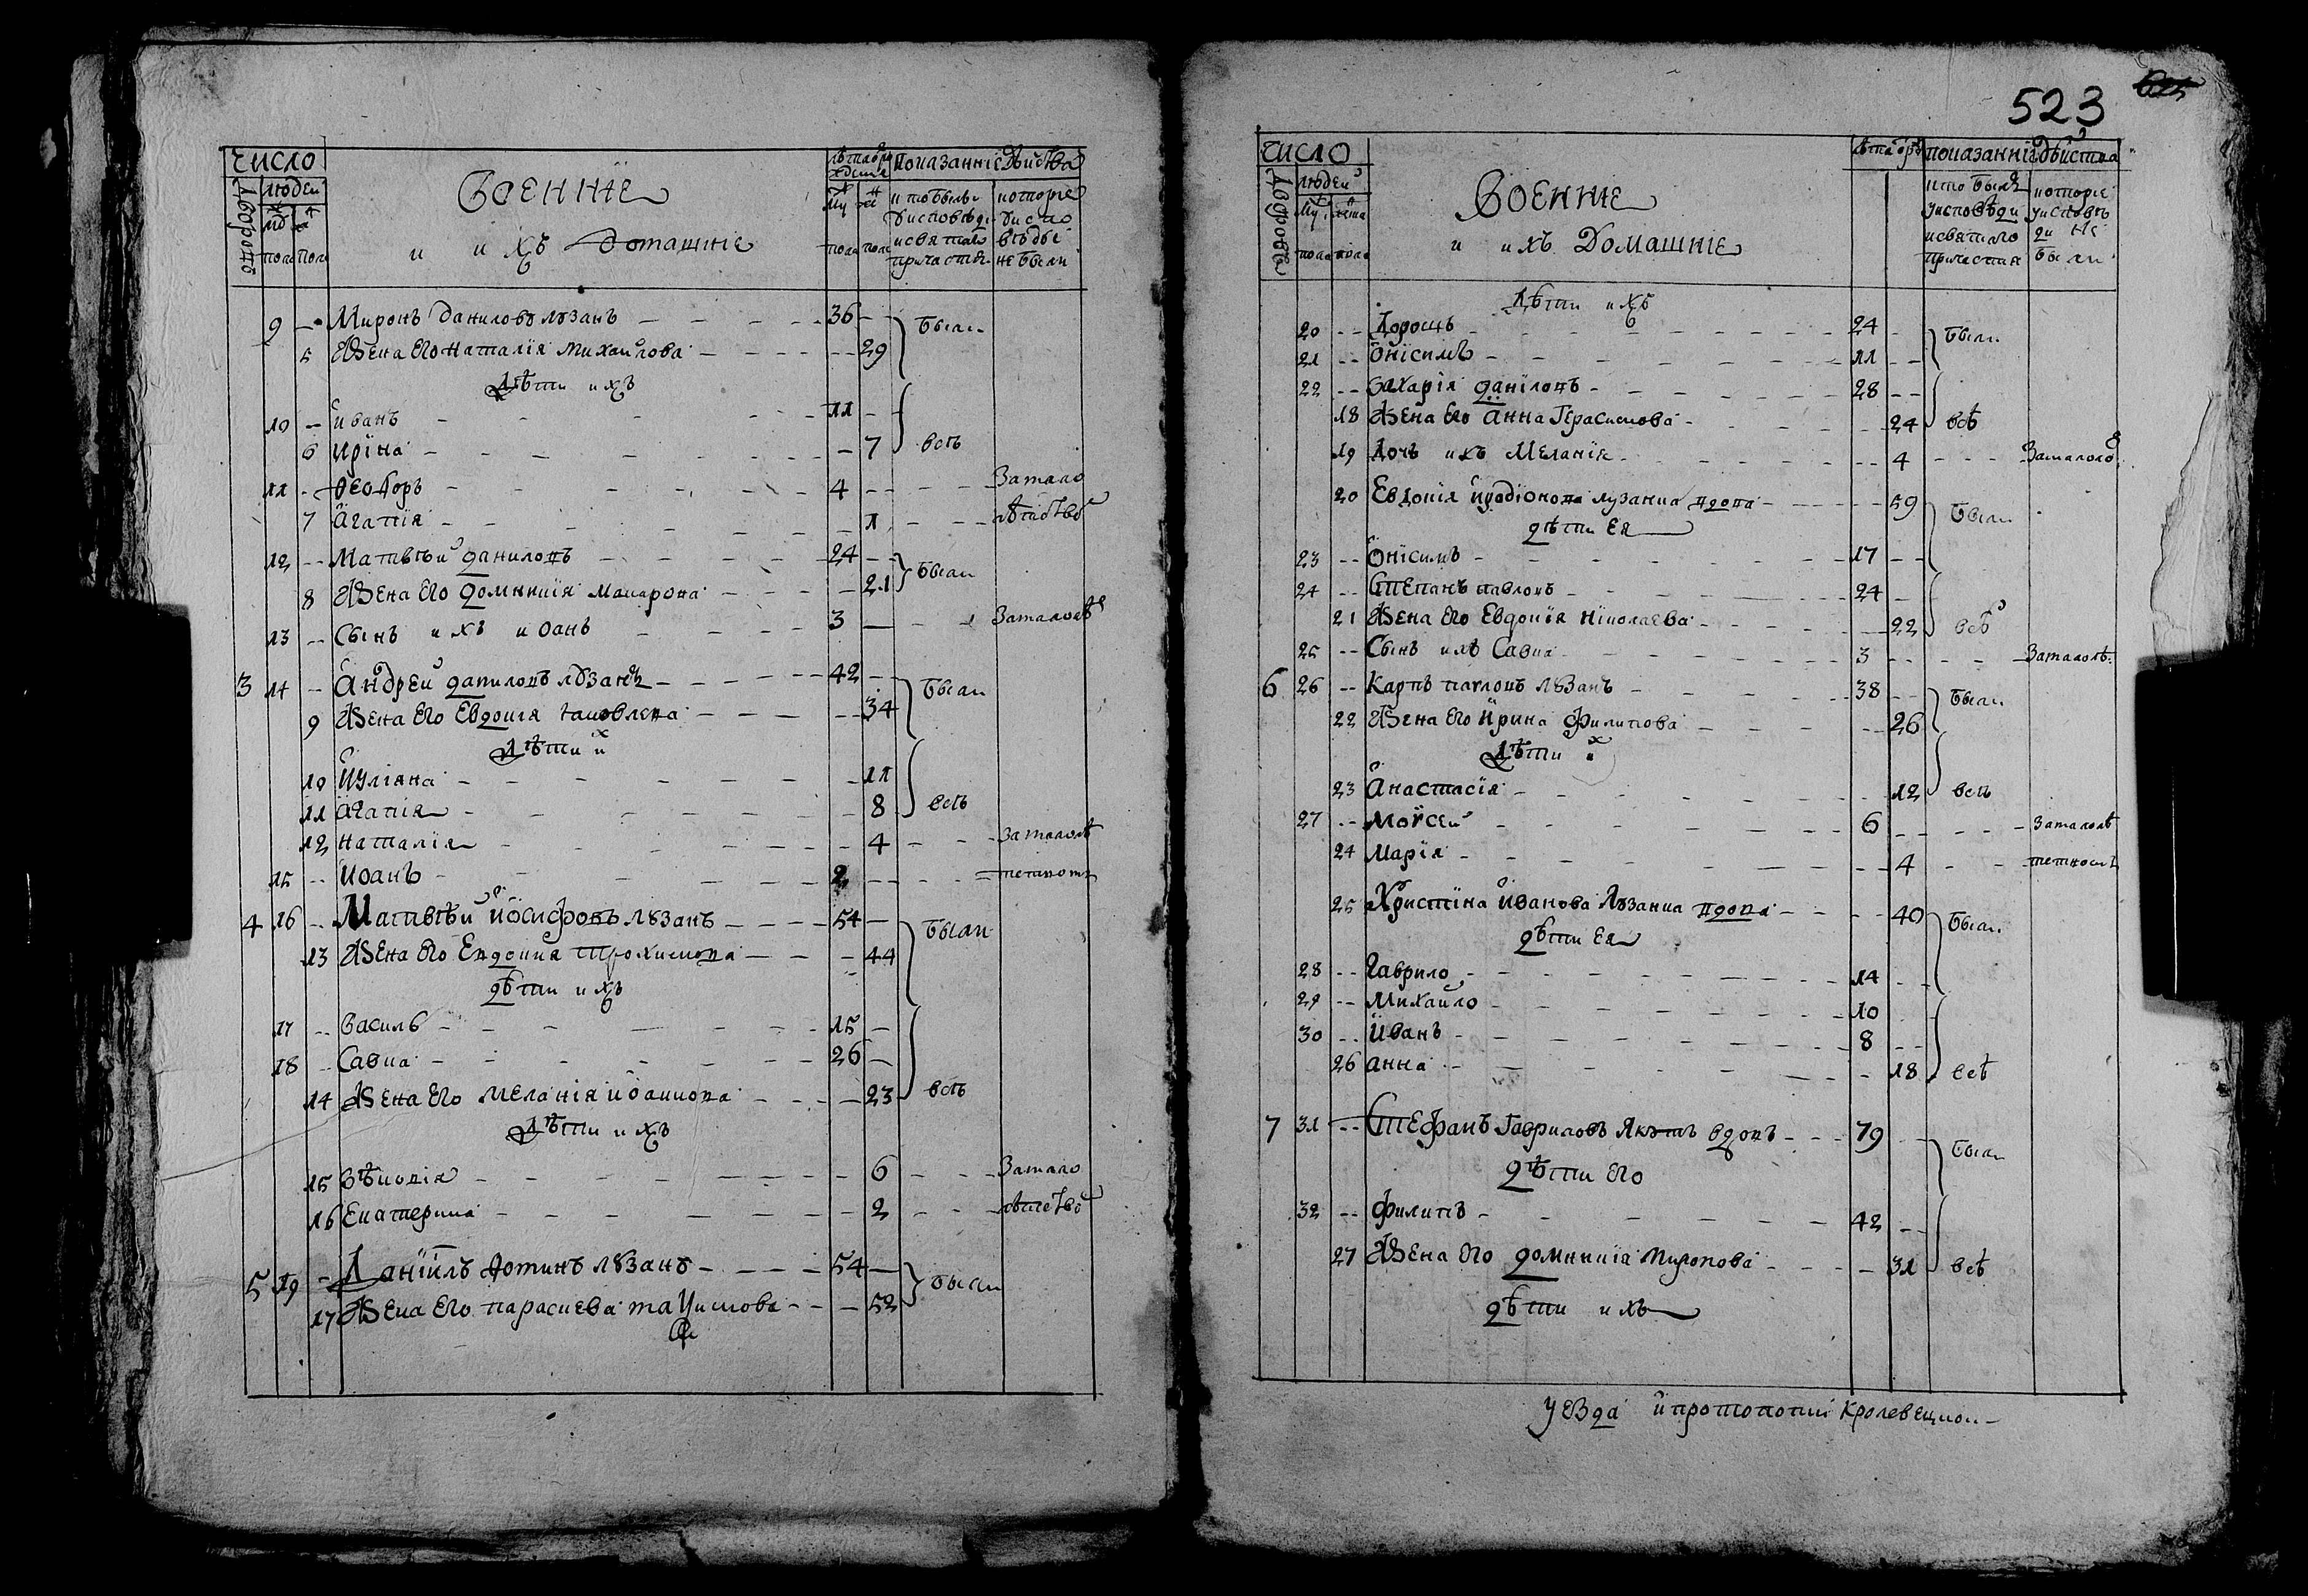 число
дворовъ
людей
му пола
же пола
Военніе
и ихъ домашніе
лѣта рожденія
му пола
же пола
показаніе дѣйства
кто былъ у исповѣди и святаго причастія
которіе у исповѣди не были
9 -- Миронъ Даниловъ Лузанъ 36
были
5 Жена его Наталія Михайлова 29
дѣти ихъ
10 -- Иванъ 11
6 Ирїна 7 всѣ
11 -- Ѳеодоръ 4 за мало
7 Агапїя 1 лѣтство
12 -- Матвѣй Даниловъ 24
были
8 Жена его Домникїя Макарова 21
13 -- Сынъ ихъ Иоанъ 3 за малолѣ
3 14 -- Андрей Даниловъ Лузанъ 42
были
9 Жена его Евдокія Іаковлева 34
дѣти их
10 Иуліана 11
11 Агапія 8 всѣ
12 Наталія 4 за малолѣ
15 -- Иоанъ 2
4 16 -- Матвѣй Иосифовъ Лузанъ 54
были
13 Жена его Евдокия Трохимова 44
дѣти ихъ
17 -- Василь 15
18 -- Савка 26
14 Жена его Меланїя Иоанновa 23 всѣ
дѣти ихъ
15 Ѳѣнонїя 6 за мало
16 Екатерина 2 лѣтство
5 19 -- Данїилъ Фоминъ Лузанъ 54
были
17 Жена его Параскева 52
523
число
дворовъ
людей
му пола
женска пола
Военніе
и ихъ Домашніе
показаніе дѣйства
кто былъ у исповѣди и святаго причастія
которіе у исповѣди не были
Дѣти ихъ
20 -- Дорошъ 24
были
21 -- Онїсимъ 11
22 -- Захарія Данїловъ 28
18 Жена его Анна Герасимова 24 всѣ
19 Дочъ ихъ Меланїя 4 за малолѣ
20 Евдокія Лузанка вдова 59
были
дѣти ея
23 -- Онїсимъ 17
24 -- Степанъ Павловъ 24
21 Жена его Евдокїя Нїколаева 22 всѣ
25 -- Сынъ ихъ Савка 3 за малолѣ
6 26 -- Карпъ Павловъ Лузанъ 38
были
22 Жена его Ирина Филипова 26
Дѣти их
23 Анастасїя 12 всѣ
27 -- Моѵсей 6 за малолѣ
24 Марїя 4
25 Христїна Иванова Лузанка вдова 40
были
дѣти ея
28 -- Гаврило 14
29 -- Михайло 10
30 -- Иванъ 8
26 Анна 18 всѣ
7 31 -- Стефанъ Гавриловъ вдовъ 79
были
дѣти его
32 -- Филипъ 42
27 Жена его Домникїя Миронова 31 всѣ
дѣти ихъ
уезда и протопопии Кролевецкои